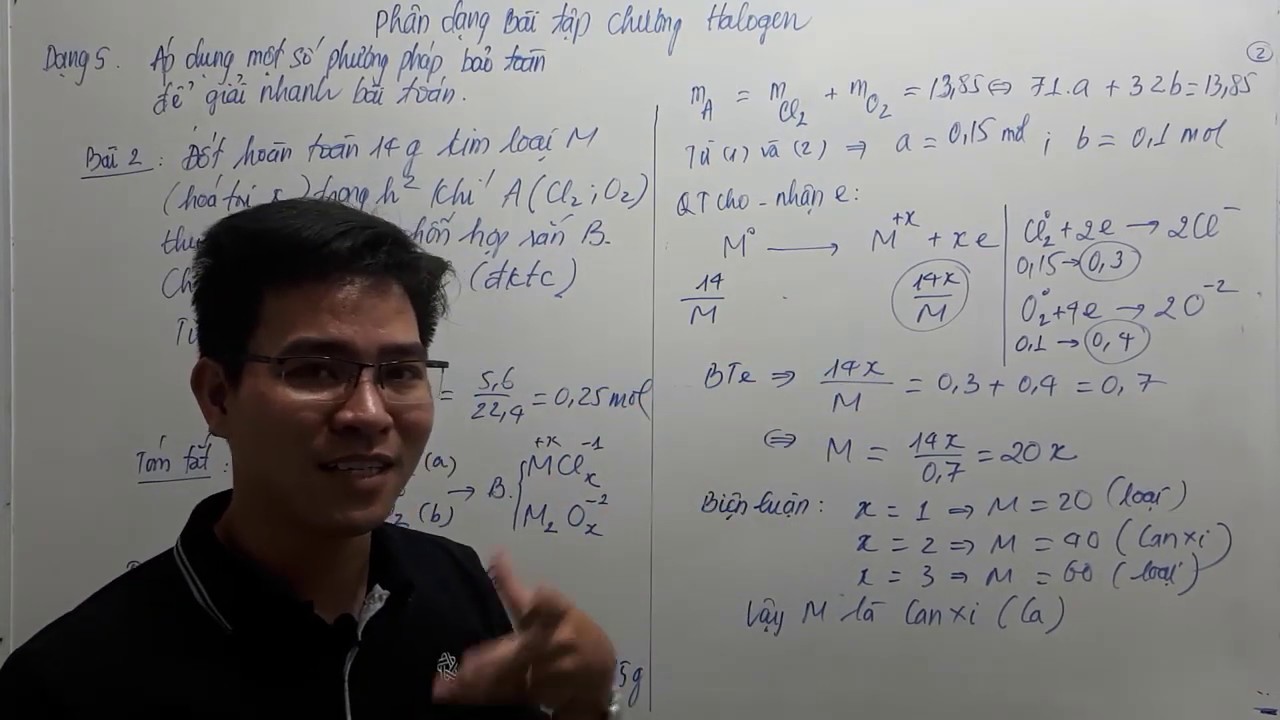 Phân dạng Bài tập chương Halogen
Dạng 5. Áp dụng một số phương pháp bảo toàn
để giải nhanh bài toán.
Bài 2: Đốt hoàn toàn 14 g kim loại M
(hoá trị x) trong h² khí A (Cl₂; O₂)
hỗn hợp rắn B.
(đktc)
= 5,6/22,4 = 0,25 mol
Tóm tắt:
(a)
(b)
→ B. { M⁺ˣClₓ⁻¹
M₂Oₓ⁻²
5g
②
m_A = m_Cl₂ + m_O₂ = 13,85 ⇔ 71.a + 32b = 13,85
Từ (1) và (2) ⇒ a = 0,15 mol ; b = 0,1 mol
QT cho - nhận e:
M⁰ → M⁺ˣ + xe
14/M 14x/M
Cl₂⁰ + 2e → 2Cl⁻
0,15 → 0,3
O₂⁰ + 4e → 2O⁻²
0,1 → 0,4
BTe ⇒ 14x/M = 0,3 + 0,4 = 0,7
⇔ M = 14x/0,7 = 20x
Biện luận: x = 1 ⇒ M = 20 (loại)
x = 2 ⇒ M = 40 (Canxi)
x = 3 ⇒ M = 60 (loại)
Vậy M là Canxi (Ca)